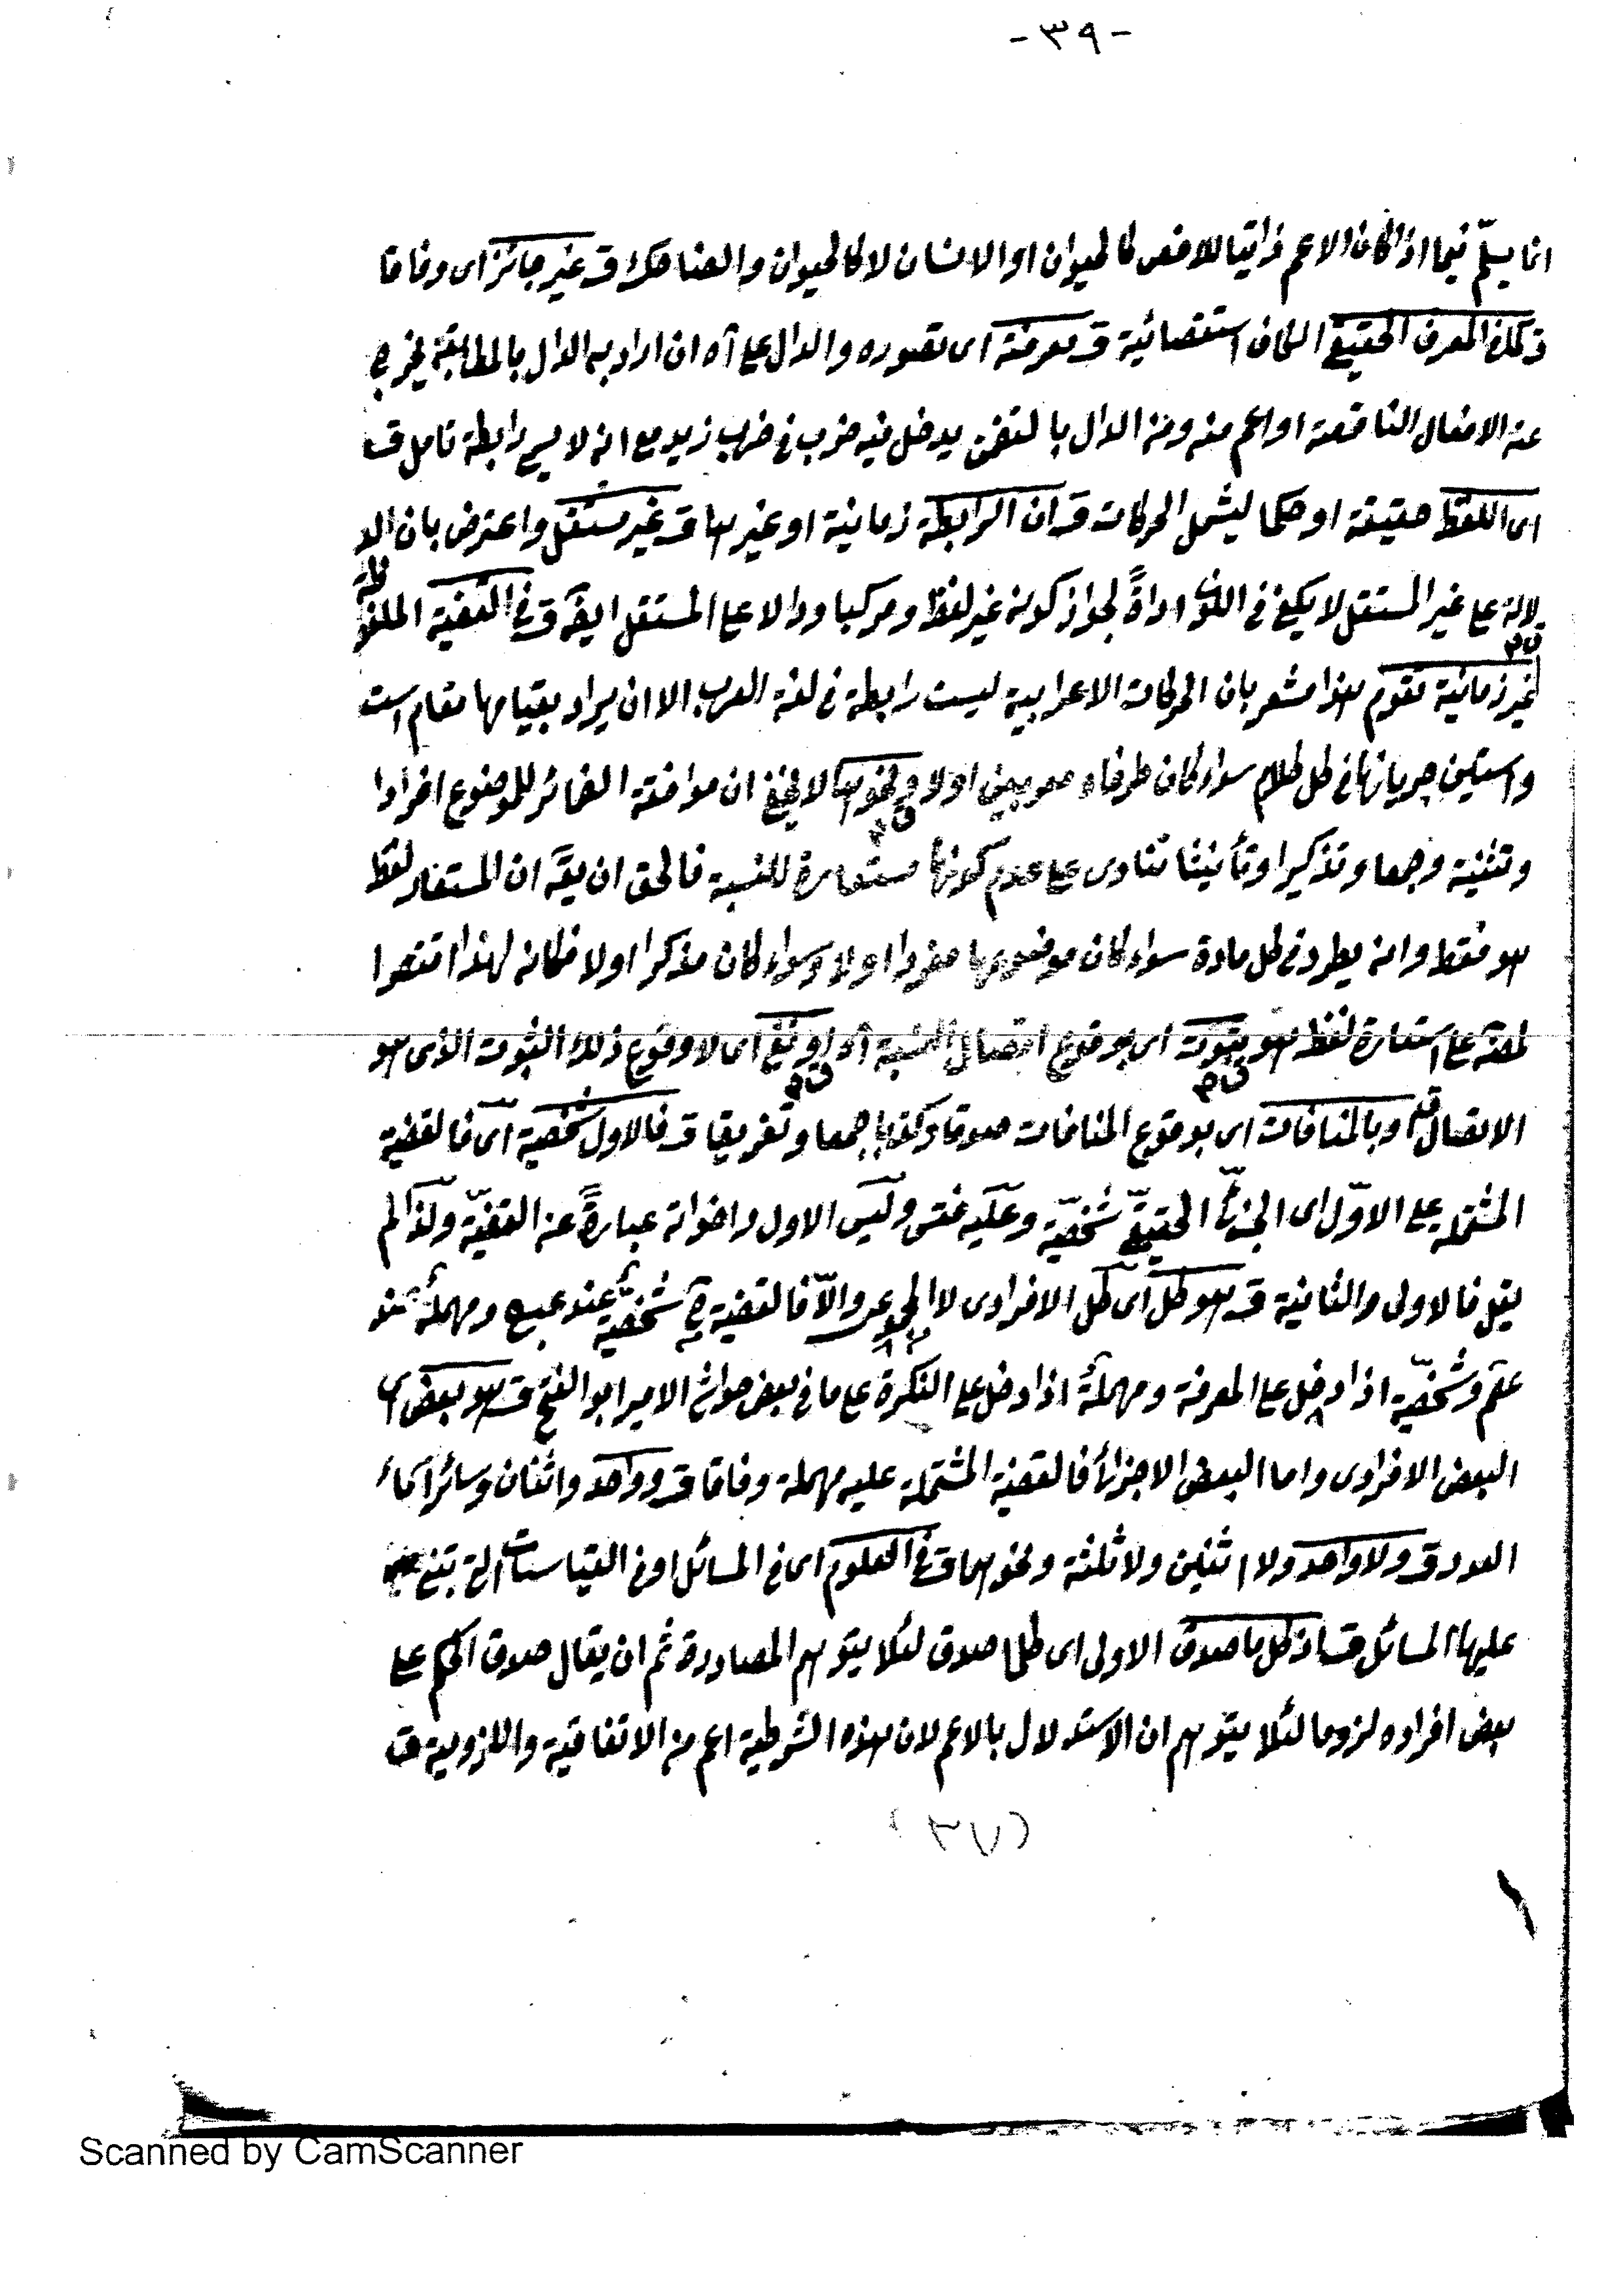 -٣٩-
انما يسلّم فيما اذا كان الاعم ذاتيا للاخص كالحيوان او الانسان لا كالحيوان والضاحك ق غير جائز اى وفاقا
المعرف الحقيقى ان كان استقصائية ق معرفته اى تصوره والدال على آه ان اراد به الدال بالمطابقة يخرج
عنه الافعال الناقصة او اعم منه ومن الدال بالتضمن يدخل فيه ضرب فى ضرب زيد مع انه لا يسمى رابطة تامل ق
اى اللفظ حقيقة او حكما ليشمل الحركات ق ان الرابطة زمانية او غيرها ق غير مستقل واعترض بان الد
لالة على غير المستقل لا يكفى فى اداةً لجواز كونه غير لفظ ومركبا ودالا على المستقل ايضا ق فى القضية الملفوظة
الغير زمانية تقوم هذا مشعر بان الحركات الاعرابية ليست رابطة فى لغة العرب الا ان يراد بقيامها مقام است
واستين جريانها فى كل كلام سواء كان طرفاه معربين اولا ونحوها لا يخفى ان موافقة الضمائر للموضوع افرادا
وتثنية وجمعا وتذكيرا وتأنيثا تنادى على عدم كونها مستعارة للنسبة فالحق ان يقَ ان المستعار لفظ
هو فقط وانه يطرد فى كل مادة سواء كان موضوعها مفردا اولا وسواء كان مذكرا اولا فكانه لهذا اقتصرا
لمصَه على استعارة لفظ هو بثبوت اى بوقوع اتصال النسبة آه او نفى اى لا وقوع ذلك الثبوت الذى هو
الاتصال او بالمنافات اى بوقوع المنافات صدقا وكذبا جمعا وتفريقا ق فالاول شخصية اى فالقضية
المشتملة على الاوّل اى الجزئىّ الحقيقىّ شخصيّة وعليه فقس وليس الاول واخواته عبارةً عن القضيّة ولذا لم
يقل فالاولى والثانية ق هو كل اى كل الافرادى لا المجموعى والاّ فالقضية شخصيّة عند عبح ومهملة عند
عصم وشخصيّة اذا دخل على المعرفة ومهملة اذا دخل على النكرة على ما فى بعض حواشى الامير ابو الفتح ق هو بعض اى
البعض الافرادى واما البعض الاجزائى فالقضية المشتملة عليه مهملة وفاقا ق وواحد واثنان وسائر اسماء
العدد ق ولا واحد ولا اثنين ولا ثلثة ونحوها ق فى العلوم اى فى المسائل او فى القياسات التى تبتنى
عليها المسائل ق اذ كل ما صدق الاولى اى كلما صدق لئلا يتوهم المصادرة ثم ان يقال صدق الحكم على
بعض افراده لزوما لئلا يتوهم ان الاستدلال بالاعم لان هذه الشرطية اعم من الاتفاقية واللزومية ق
(٣٧)
Scanned by CamScanner